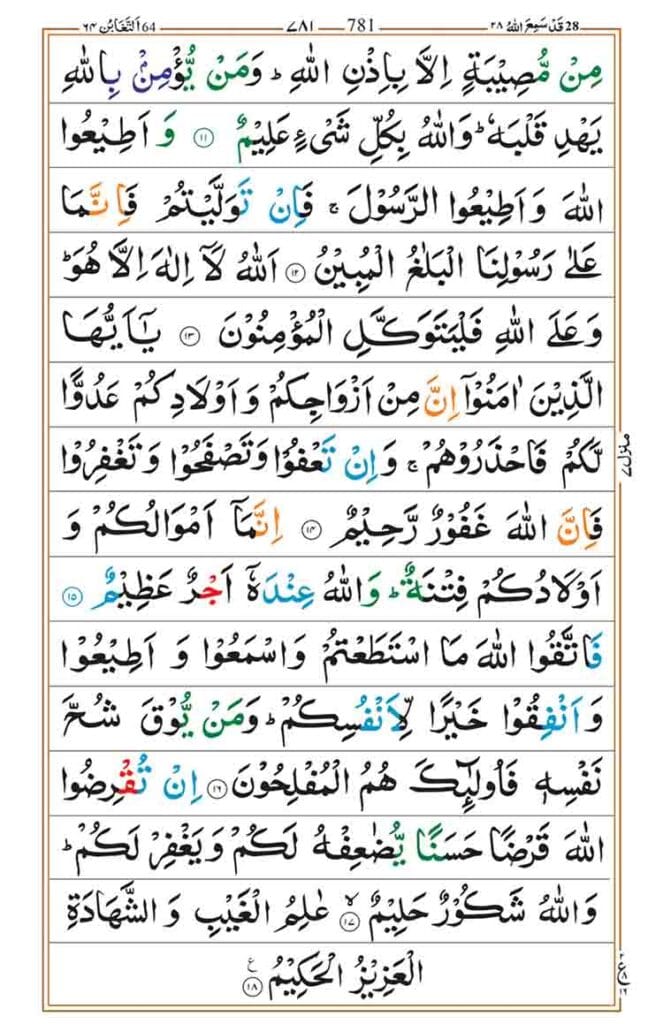 28 قَدْ سَمِعَ اللّٰهُ ۲۸ 781 ۷۸۱ 64 اَلتَّغَابُن ۶۴
مِنْ مُّصِيْبَةٍ اِلَّا بِاِذْنِ اللّٰهِ ؕ وَمَنْ يُّؤْمِنْۢ بِاللّٰهِ
يَهْدِ قَلْبَهٗ ؕ وَاللّٰهُ بِكُلِّ شَىْءٍ عَلِيْمٌ ۝۱۱ وَ اَطِيْعُوا
اللّٰهَ وَ اَطِيْعُوا الرَّسُوْلَ ۚ فَاِنْ تَوَلَّيْتُمْ فَاِنَّمَا
عَلٰى رَسُوْلِنَا الْبَلٰغُ الْمُبِيْنُ ۝۱۲ اَللّٰهُ لَاۤ اِلٰهَ اِلَّا هُوَ ؕ
وَ عَلَى اللّٰهِ فَلْيَتَوَكَّلِ الْمُؤْمِنُوْنَ ۝۱۳ يٰۤاَيُّهَا
الَّذِيْنَ اٰمَنُوْۤا اِنَّ مِنْ اَزْوَاجِكُمْ وَ اَوْلَادِكُمْ عَدُوًّا
لَّكُمْ فَاحْذَرُوْهُمْ ۚ وَ اِنْ تَعْفُوْا وَ تَصْفَحُوْا وَ تَغْفِرُوْا
فَاِنَّ اللّٰهَ غَفُوْرٌ رَّحِيْمٌ ۝۱۴ اِنَّمَاۤ اَمْوَالُكُمْ وَ
اَوْلَادُكُمْ فِتْنَةٌ ؕ وَاللّٰهُ عِنْدَهٗۤ اَجْرٌ عَظِيْمٌ ۝۱۵
فَاتَّقُوا اللّٰهَ مَا اسْتَطَعْتُمْ وَاسْمَعُوْا وَ اَطِيْعُوْا
وَ اَنْفِقُوْا خَيْرًا لِّاَنْفُسِكُمْ ؕ وَمَنْ يُّوْقَ شُحَّ
نَفْسِهٖ فَاُولٰٓئِكَ هُمُ الْمُفْلِحُوْنَ ۝۱۶ اِنْ تُقْرِضُوا
اللّٰهَ قَرْضًا حَسَنًا يُّضٰعِفْهُ لَكُمْ وَ يَغْفِرْ لَكُمْ ؕ
وَاللّٰهُ شَكُوْرٌ حَلِيْمٌ ۙ۝۱۷ عٰلِمُ الْغَيْبِ وَ الشَّهَادَةِ
الْعَزِيْزُ الْحَكِيْمُ ۝۱۸ ع
منزل ۷